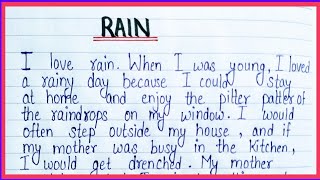 RAIN
I love rain. When I was young, I loved
a rainy day because I could stay
at home and enjoy the pitter patter of
the raindrops on my window. I would
often step outside my house, and if
my mother was busy in the kitchen,
I would get drenched. My mother